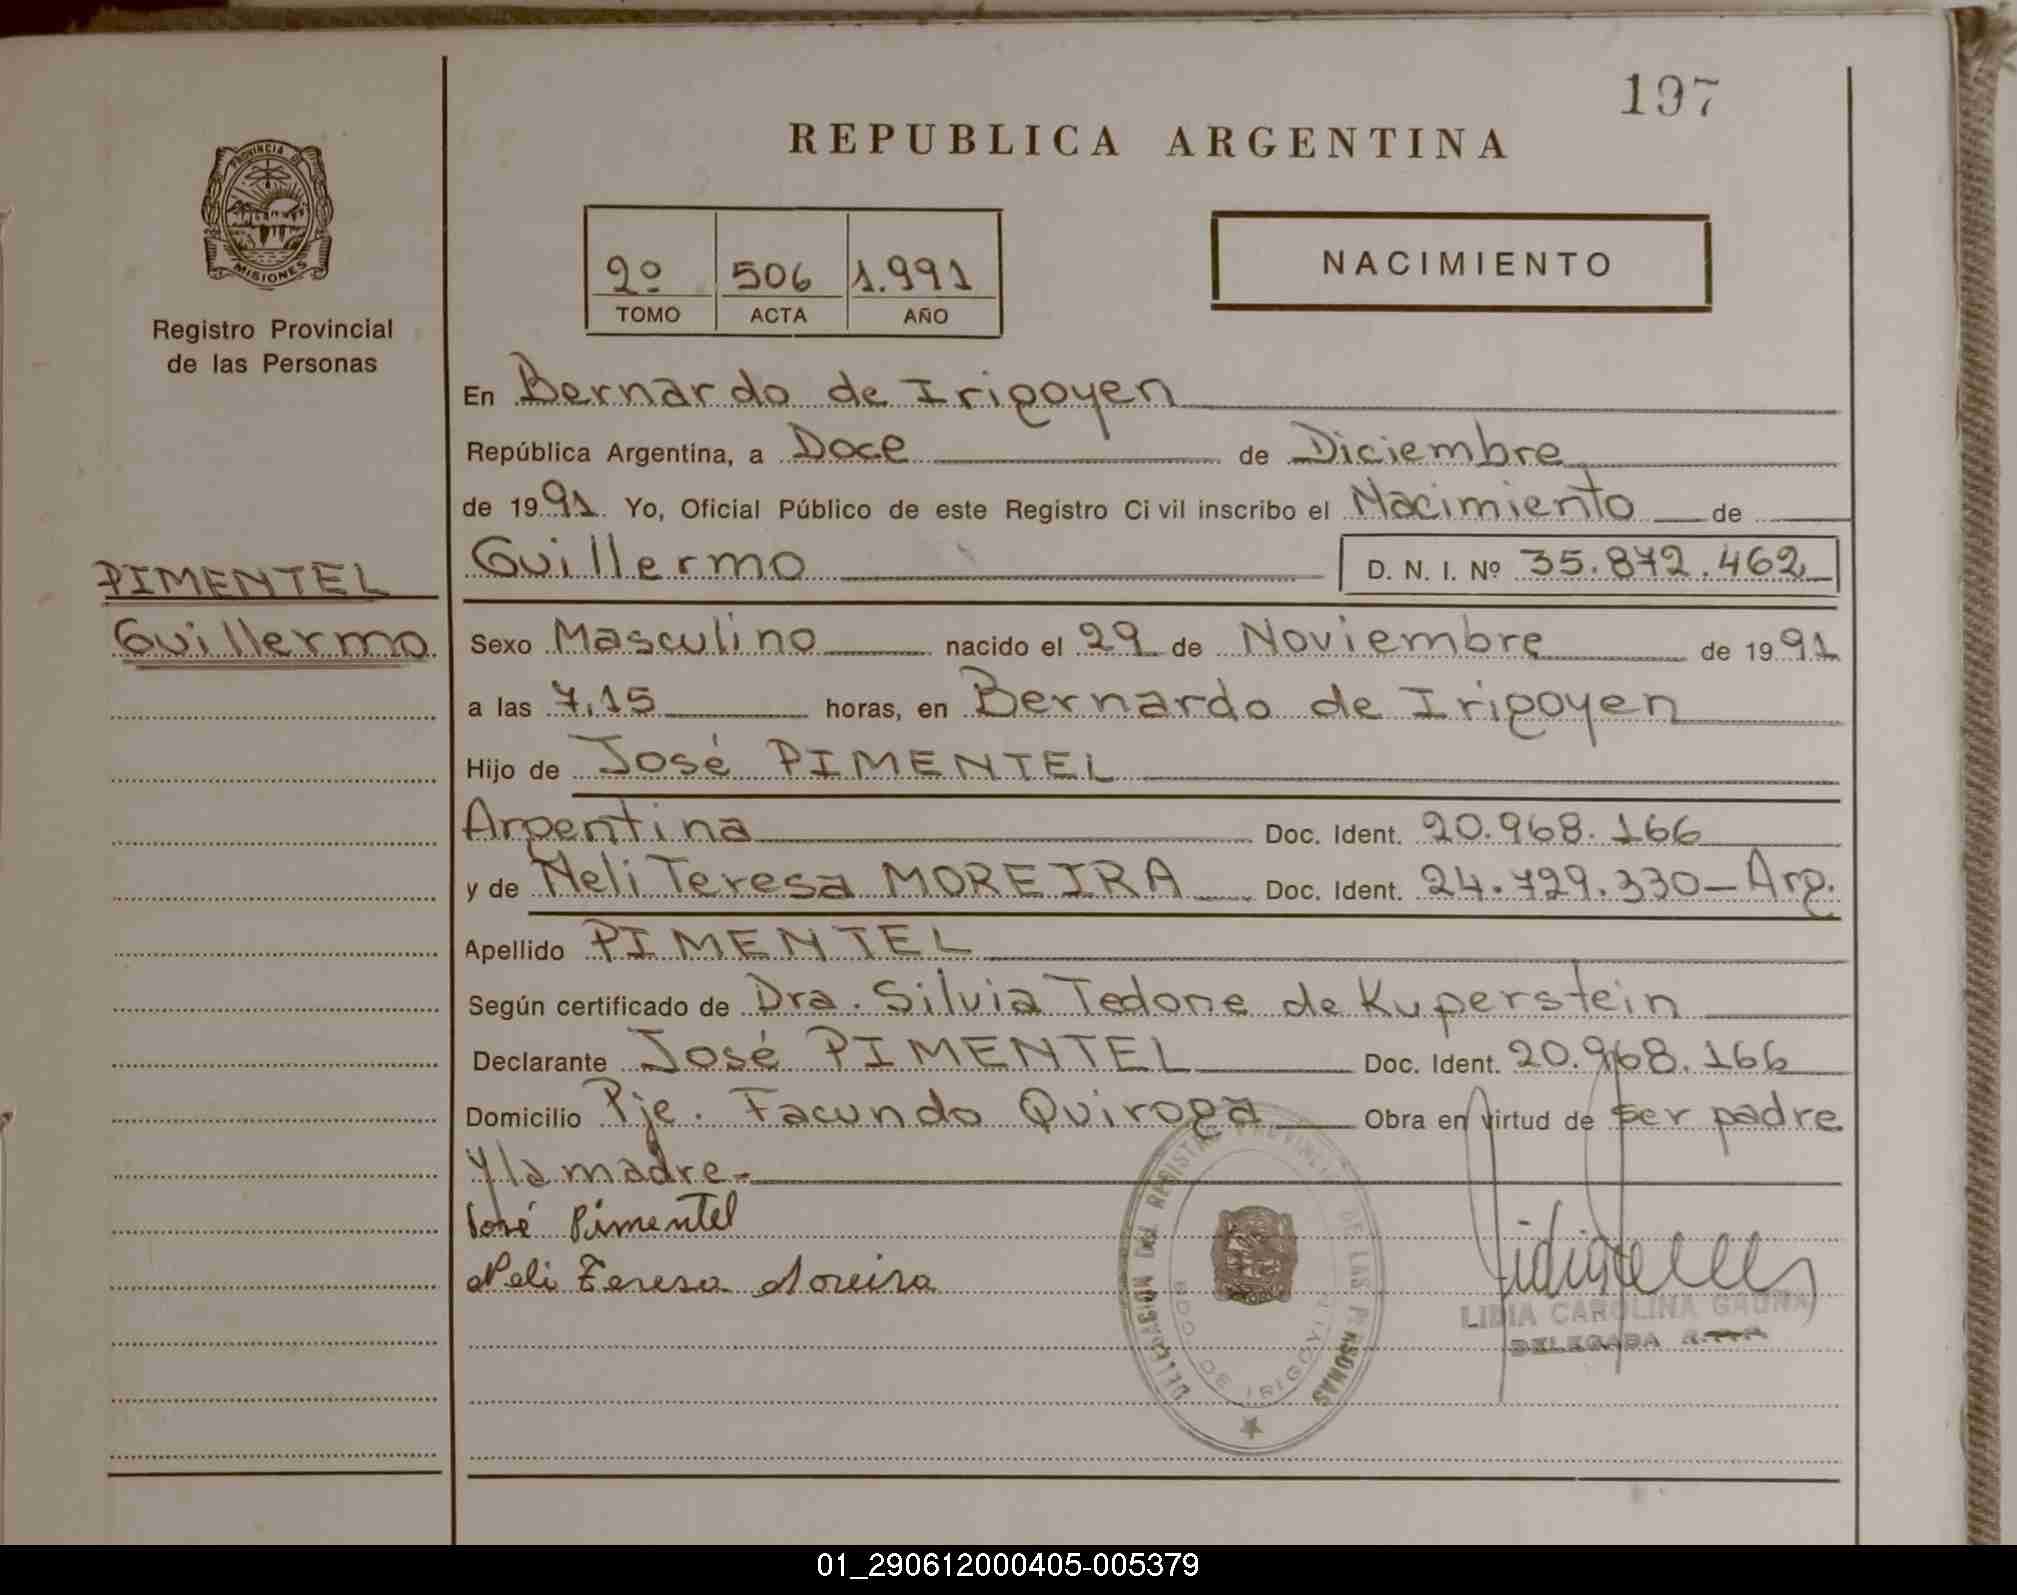 197
REPUBLICA ARGENTINA
PROVINCIA DE
MISIONES
Registro Provincial
de las Personas
2º 506 1.991
TOMO ACTA AÑO
NACIMIENTO
En Bernardo de Irigoyen
República Argentina, a Doce de Diciembre
de 1991 Yo, Oficial Público de este Registro Civil inscribo el Nacimiento de
Guillermo D. N. I. Nº 35.872.462
PIMENTEL
Guillermo
Sexo Masculino nacido el 29 de Noviembre de 1991
a las 7,15 horas, en Bernardo de Irigoyen
Hijo de José PIMENTEL
Argentina Doc. Ident. 20.968.166
y de Neli Teresa MOREIRA Doc. Ident. 24.729.330 - Arg.
Apellido PIMENTEL
Según certificado de Dra. Silvia Tedone de Kuperstein
Declarante José PIMENTEL Doc. Ident. 20.968.166
Domicilio Pje. Facundo Quiroga Obra en virtud de ser padre
y la madre-
José Pimentel
Neli Teresa Moreira
DELEGACION DEL REGISTRO PROVINCIAL DE LAS PERSONAS
BDO. DE IRIGOYEN
LIDIA CAROLINA GAUNA
DELEGADA
01_290612000405-005379